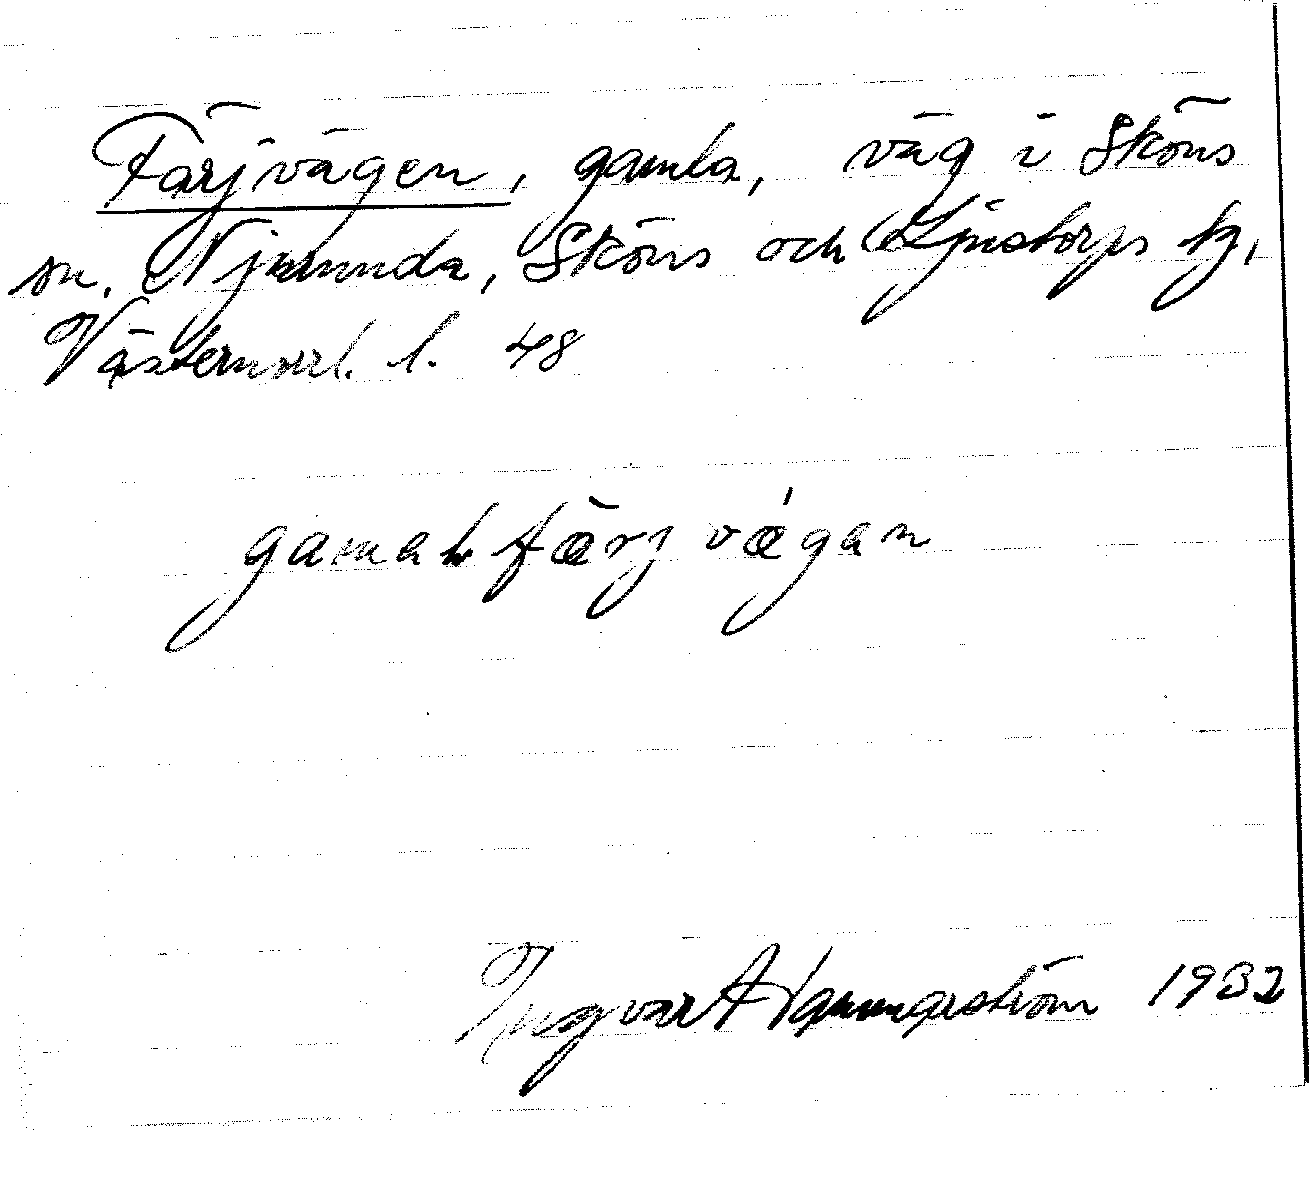 Färjvägen, gamla, väg i Sköns
sn. Njurunda, Sköns och Ljustorps tg,
Västernorrl. l. 48
færj vǽgan
Ingvar Hammarström 1932